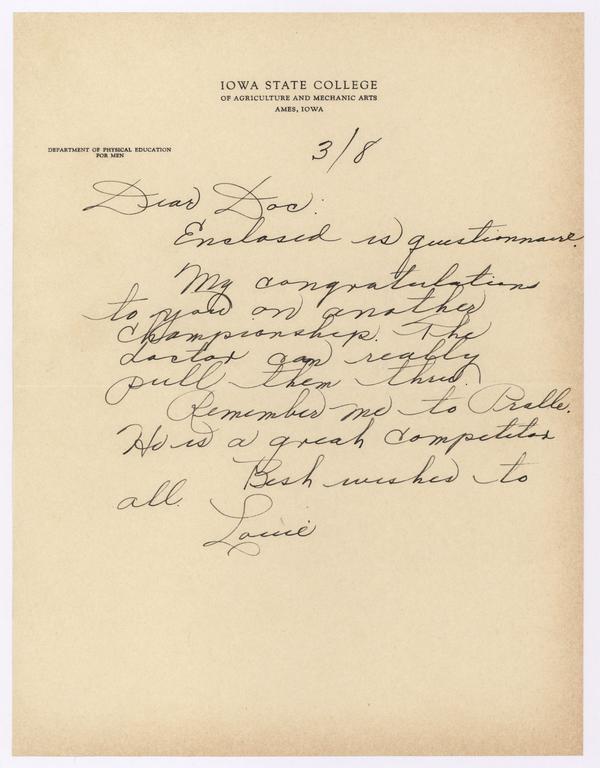 IOWA STATE COLLEGE
OF AGRICULTURE AND MECHANIC ARTS
AMES, IOWA
DEPARTMENT OF PHYSICAL EDUCATION
FOR MEN
3/8
Dear Doc:
Enclosed is questionnaire.
My congratulations
to you on another
championship. The
doctor can really
pull them thru.
Remember me to Pralle.
He is a great competitor
Best wishes to
all.
Louie